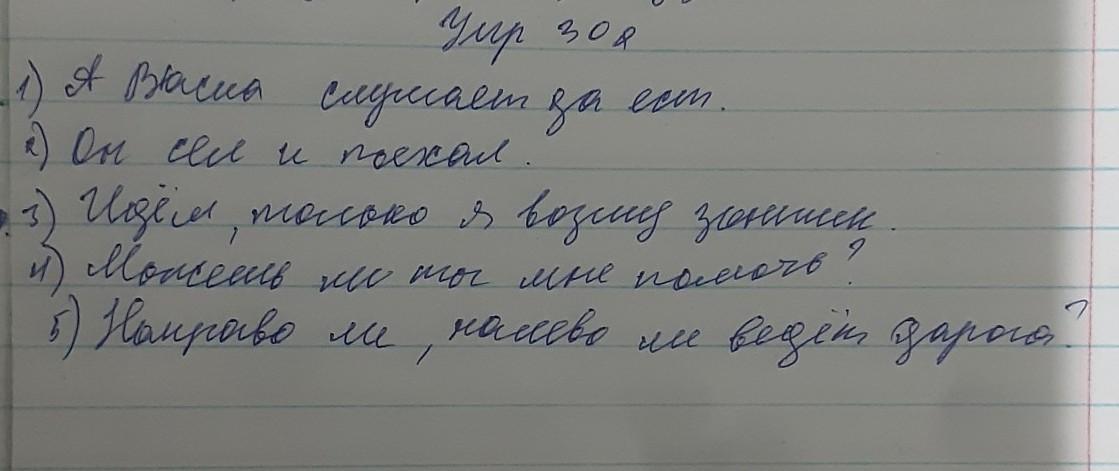 Упр 308
1) А Васка слушает да ест.
2) Он сел и поехал.
3) Идём, только я возму зонтик.
4) Можешь ли ты мне помочь?
5) Направо ли, налево ли ведёт дарога?